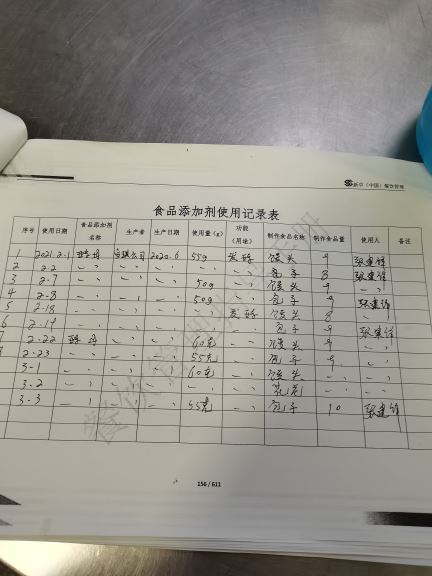 新中（中国）餐饮管理
食品添加剂使用记录表
序号 使用日期 食品添加剂名称 生产者 生产日期 使用量(g) 功能（用途） 制作食品名称 制作食品量 使用人 备注
1 2021.2.1 酵母 安琪公司 2020.6 55g 发酵 馒头 9
2 2.2 〃 〃 〃 〃 〃 包子 8
3 2.7 〃 〃 〃 50g 〃 馒头 9
4 2.8 〃 〃 〃 50g 〃 包子 9
5 2.18 〃 〃 〃 发酵 馒头 8 〃
6 2.19 〃 〃 〃 〃 包子 9
7 2.22 酵母 〃 〃 60克 〃 馒头 9 〃
2.23 〃 〃 〃 55克 〃 包子 9 〃
3.1 〃 〃 〃 60克 〃 馒头 〃 〃
3.2 〃 〃 〃 〃 〃 花卷 〃 〃
3.3 〃 〃 〃 55克 〃 包子 10
156 / 611